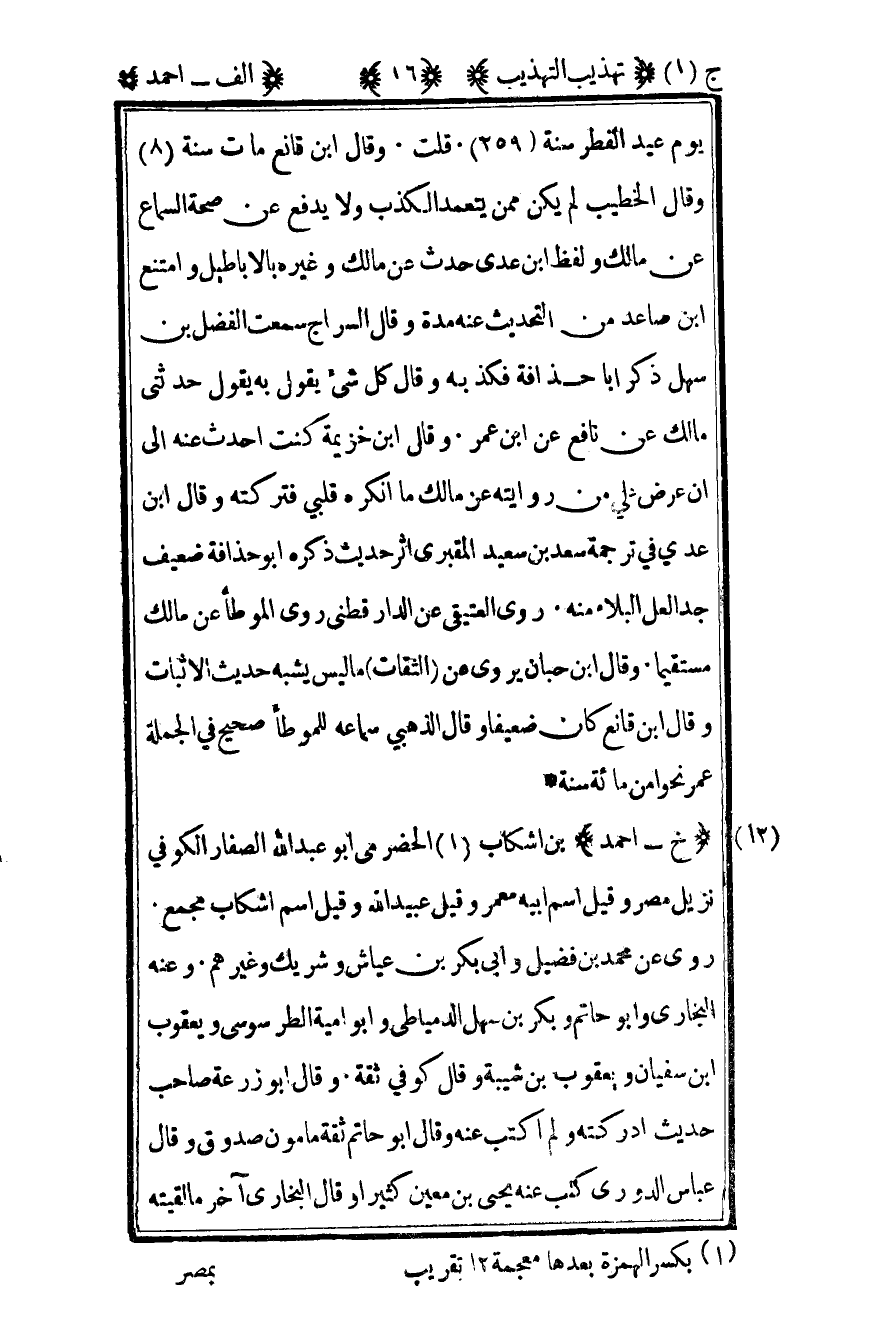 ج (١) ﴿ تهذيب التهذيب ﴾ ﴿١٦﴾ ﴿ الف ــ احمد ﴾
يوم عيد الفطر سنة (٢٥٩) · قلت · وقال ابن قانع مات سنة (٨)
وقال الخطيب لم يكن ممن يتعمد الكذب ولا يدفع عن صحة السماع
عن مالك ولفظ ابن عدى حدث عن مالك وغيره بالاباطيل وامتنع
ابن صاعد من التحديث عنه مدة وقال السراج سمعت الفضل بن
سهل ذكر ابا حذافة فكذبه وقال كل شئ يقول به يقول حدثنى
مالك عن نافع عن ابن عمر · وقال ابن خزيمة كنت احدث عنه الى
ان عرض لي من روايته عن مالك ما انكره قلبي فتركته وقال ابن
عدي في ترجمة سعد بن سعيد المقبرى اثر حديث ذكره ابو حذافة ضعيف
جدا لعل البلاء منه · روى العتيقى عن الدارقطنى روى الموطأ عن مالك
مستقيما · وقال ابن حبان يروى عن (الثقات) ما ليس يشبه حديث الاثبات
وقال ابن قانع كان ضعيفا وقال الذهبي سماعه للموطأ صحيح في الجملة
عمر نحوا من مائة سنة *
(١٢) ﴿ خ ــ احمد ﴾ بن اشكاب (١) الحضرمى ابو عبدالله الصفار الكوفي
نزيل مصر وقيل اسم ابيه معمر وقيل عبيدالله وقيل اسم اشكاب مجمع ·
روى عن محمد بن فضيل وابى بكر بن عياش وشريك وغيرهم · وعنه
البخارى وابو حاتم وبكر بن سهل الدمياطى وابو امية الطرسوسى ويعقوب
ابن سفيان ويعقوب بن شيبة وقال كوفي ثقة · وقال ابو زرعة صاحب
حديث ادركته ولم اكتب عنه وقال ابو حاتم ثقة مامون صدوق وقال
عباس الدورى كتب عنه يحيى بن معين كثيرا وقال البخارى آخر ما لقيته
(١) بكسر الهمزة بعدها معجمة ١٢ تقريب
بمصر